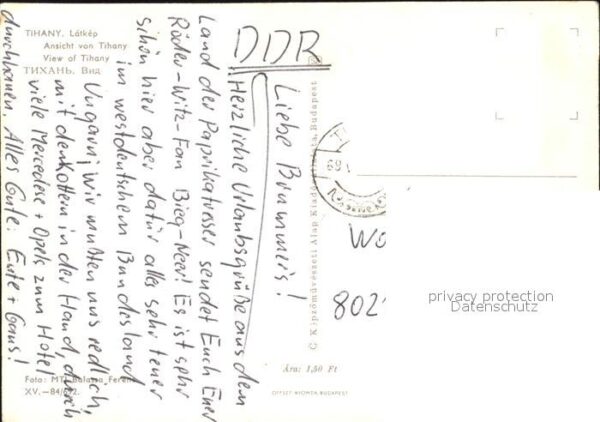 TIHANY. Látkép
Ansicht von Tihany
View of Tihany
ТИХАНЬ. Вид
DDR
Liebe Brummer's!
Herzliche Urlaubsgrüße aus dem
Land der Paprikafresser sendet Euch Euer
Räder-Witz-Fan Bieg-Neer! Es ist sehr
schön hier aber dafür alles sehr teuer
im westdeutschen Bundesland
Ungarn; wir mußten uns redlich,
mit den Koffern in der Hand, durch
viele Mercedese + Opels zum Hotel
durchhauen. Alles Gute: Ente + Gans!
Foto: MTI Balassa Ferenc
XV.—84/
© Képzőművészeti Alap Kiadóvállalata, Budapest
Ára: 1,50 Ft
OFFSET NYOMDA, BUDAPEST
Wo
802
privacy protection
Datenschutz